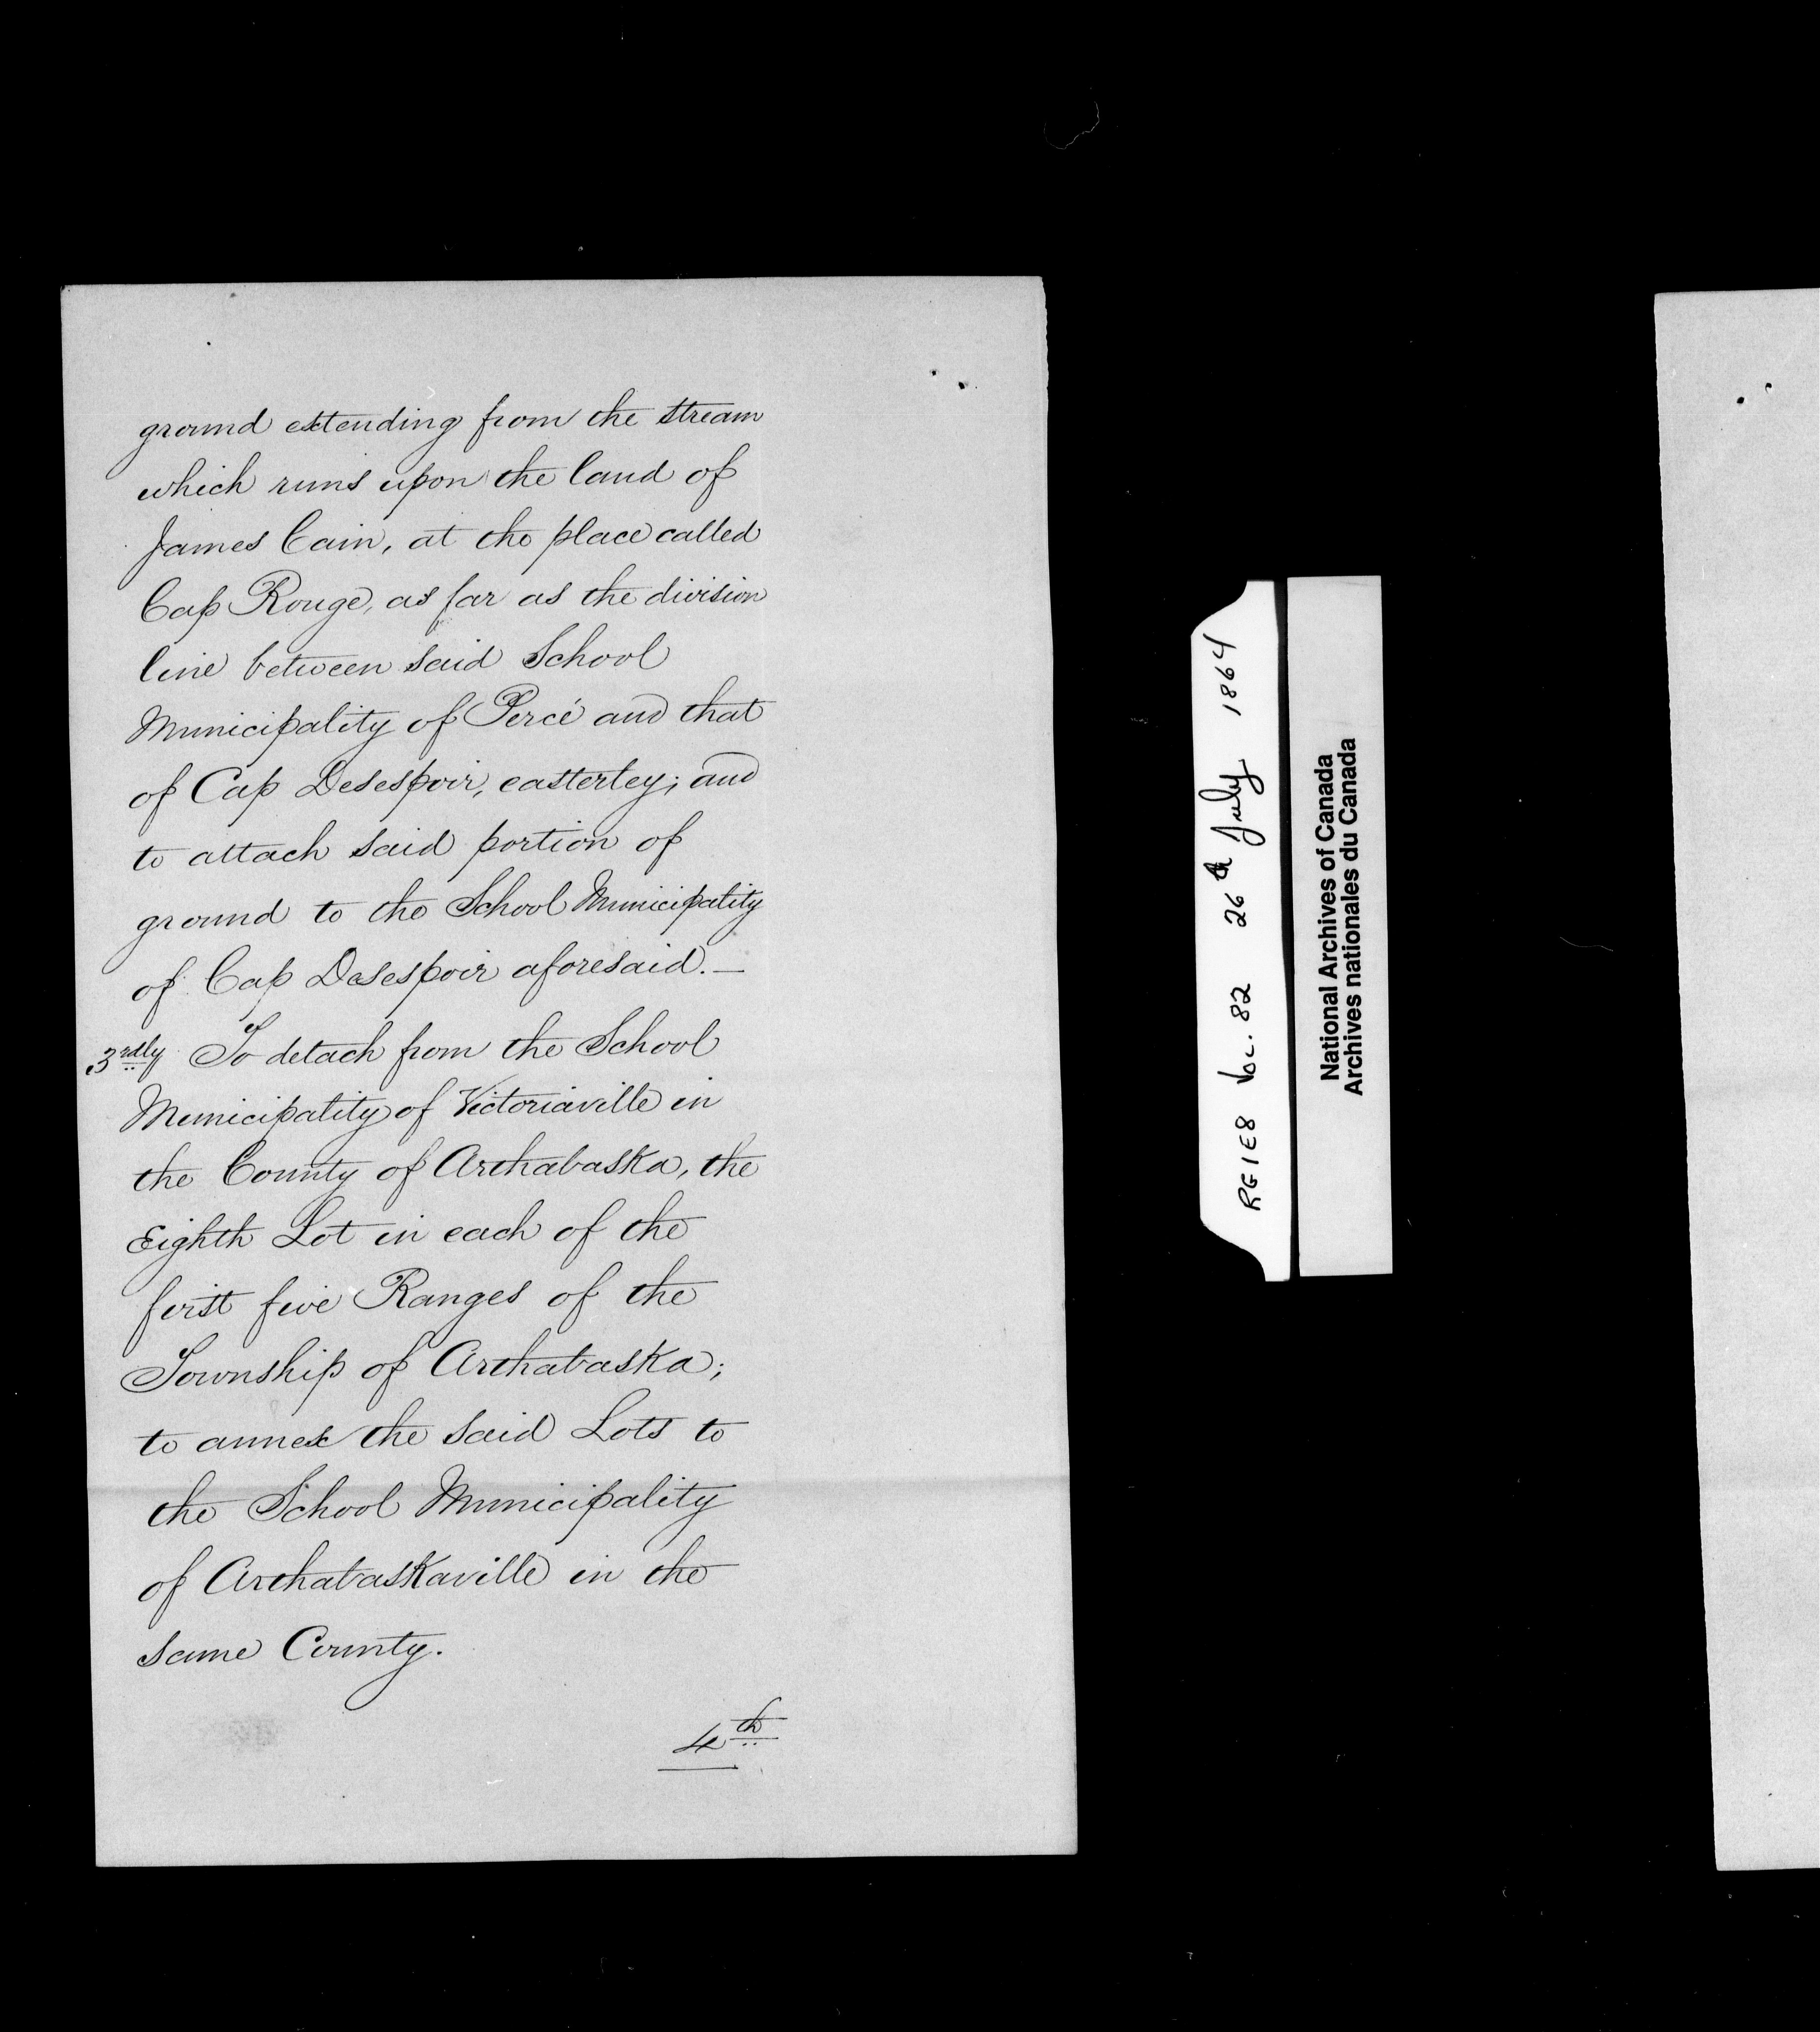 ground extending from the stream
which runs upon the land of
James Cain, at the place called
Cap Rouge, as far as the division
line between said School
Municipality of Percé and that
of Cap Desespoir, easterley; and
to attach said portion of
ground to the School Municipality
of Cap Desespoir aforesaid. —
3rdly To detach from the School
Municipality of Victoriaville in
the County of Arthabaska, the
Eighth Lot in each of the
first five Ranges of the
Township of Arthabaska;
to annex the said Lots to
the School Municipality
of Arthabaskaville in the
same County.
4th
RG1E8 Vol. 82 26th July 1864
National Archives of Canada
Archives nationales du Canada